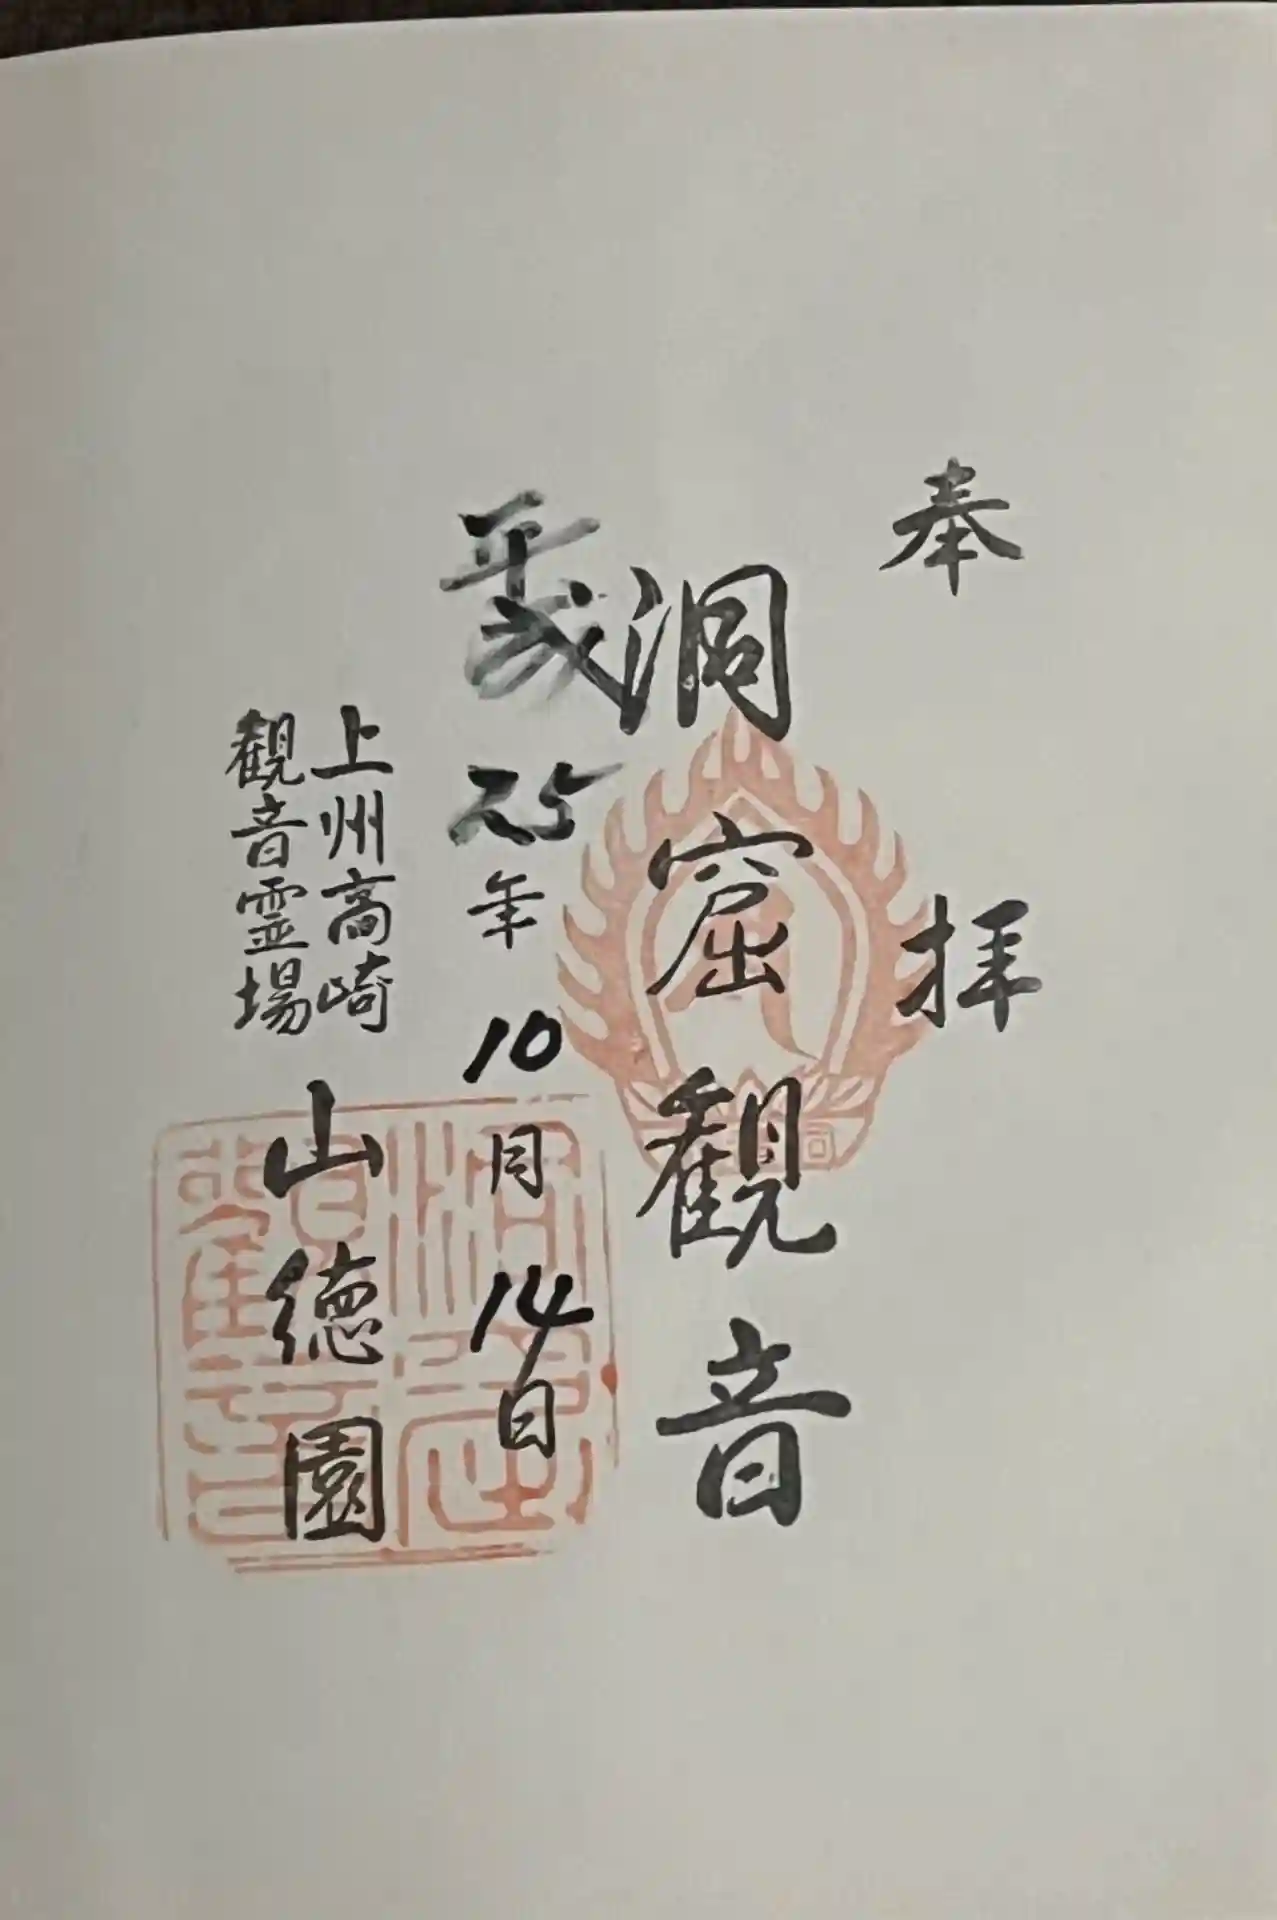 奉拝
洞窟觀音
平成25年10月14日
上州高崎
観音霊場
山徳園